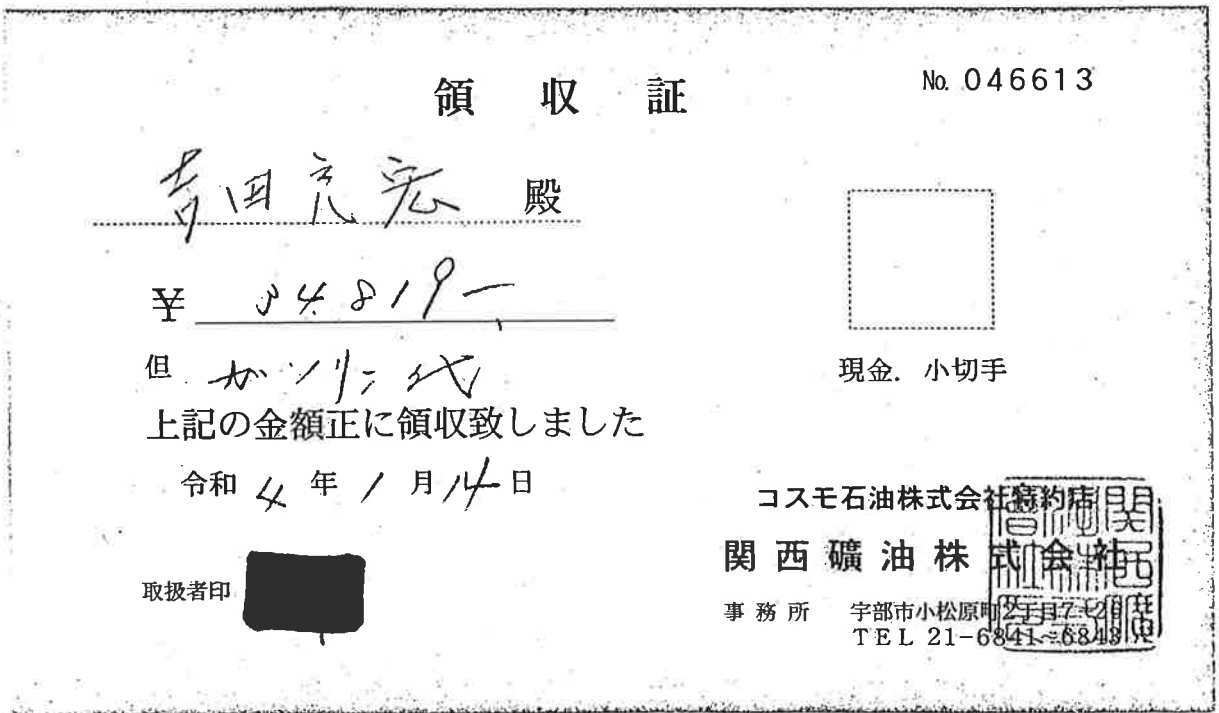 領収証
No. 046613
吉田充宏 殿
¥ 34,819-
但 ガソリン代
上記の金額正に領収致しました
令和 4 年 1 月 14 日
現金. 小切手
取扱者印
コスモ石油株式会社特約店
関西礦油株式会社
事務所 宇部市小松原町2丁目7-20
TEL 21-6841~6843